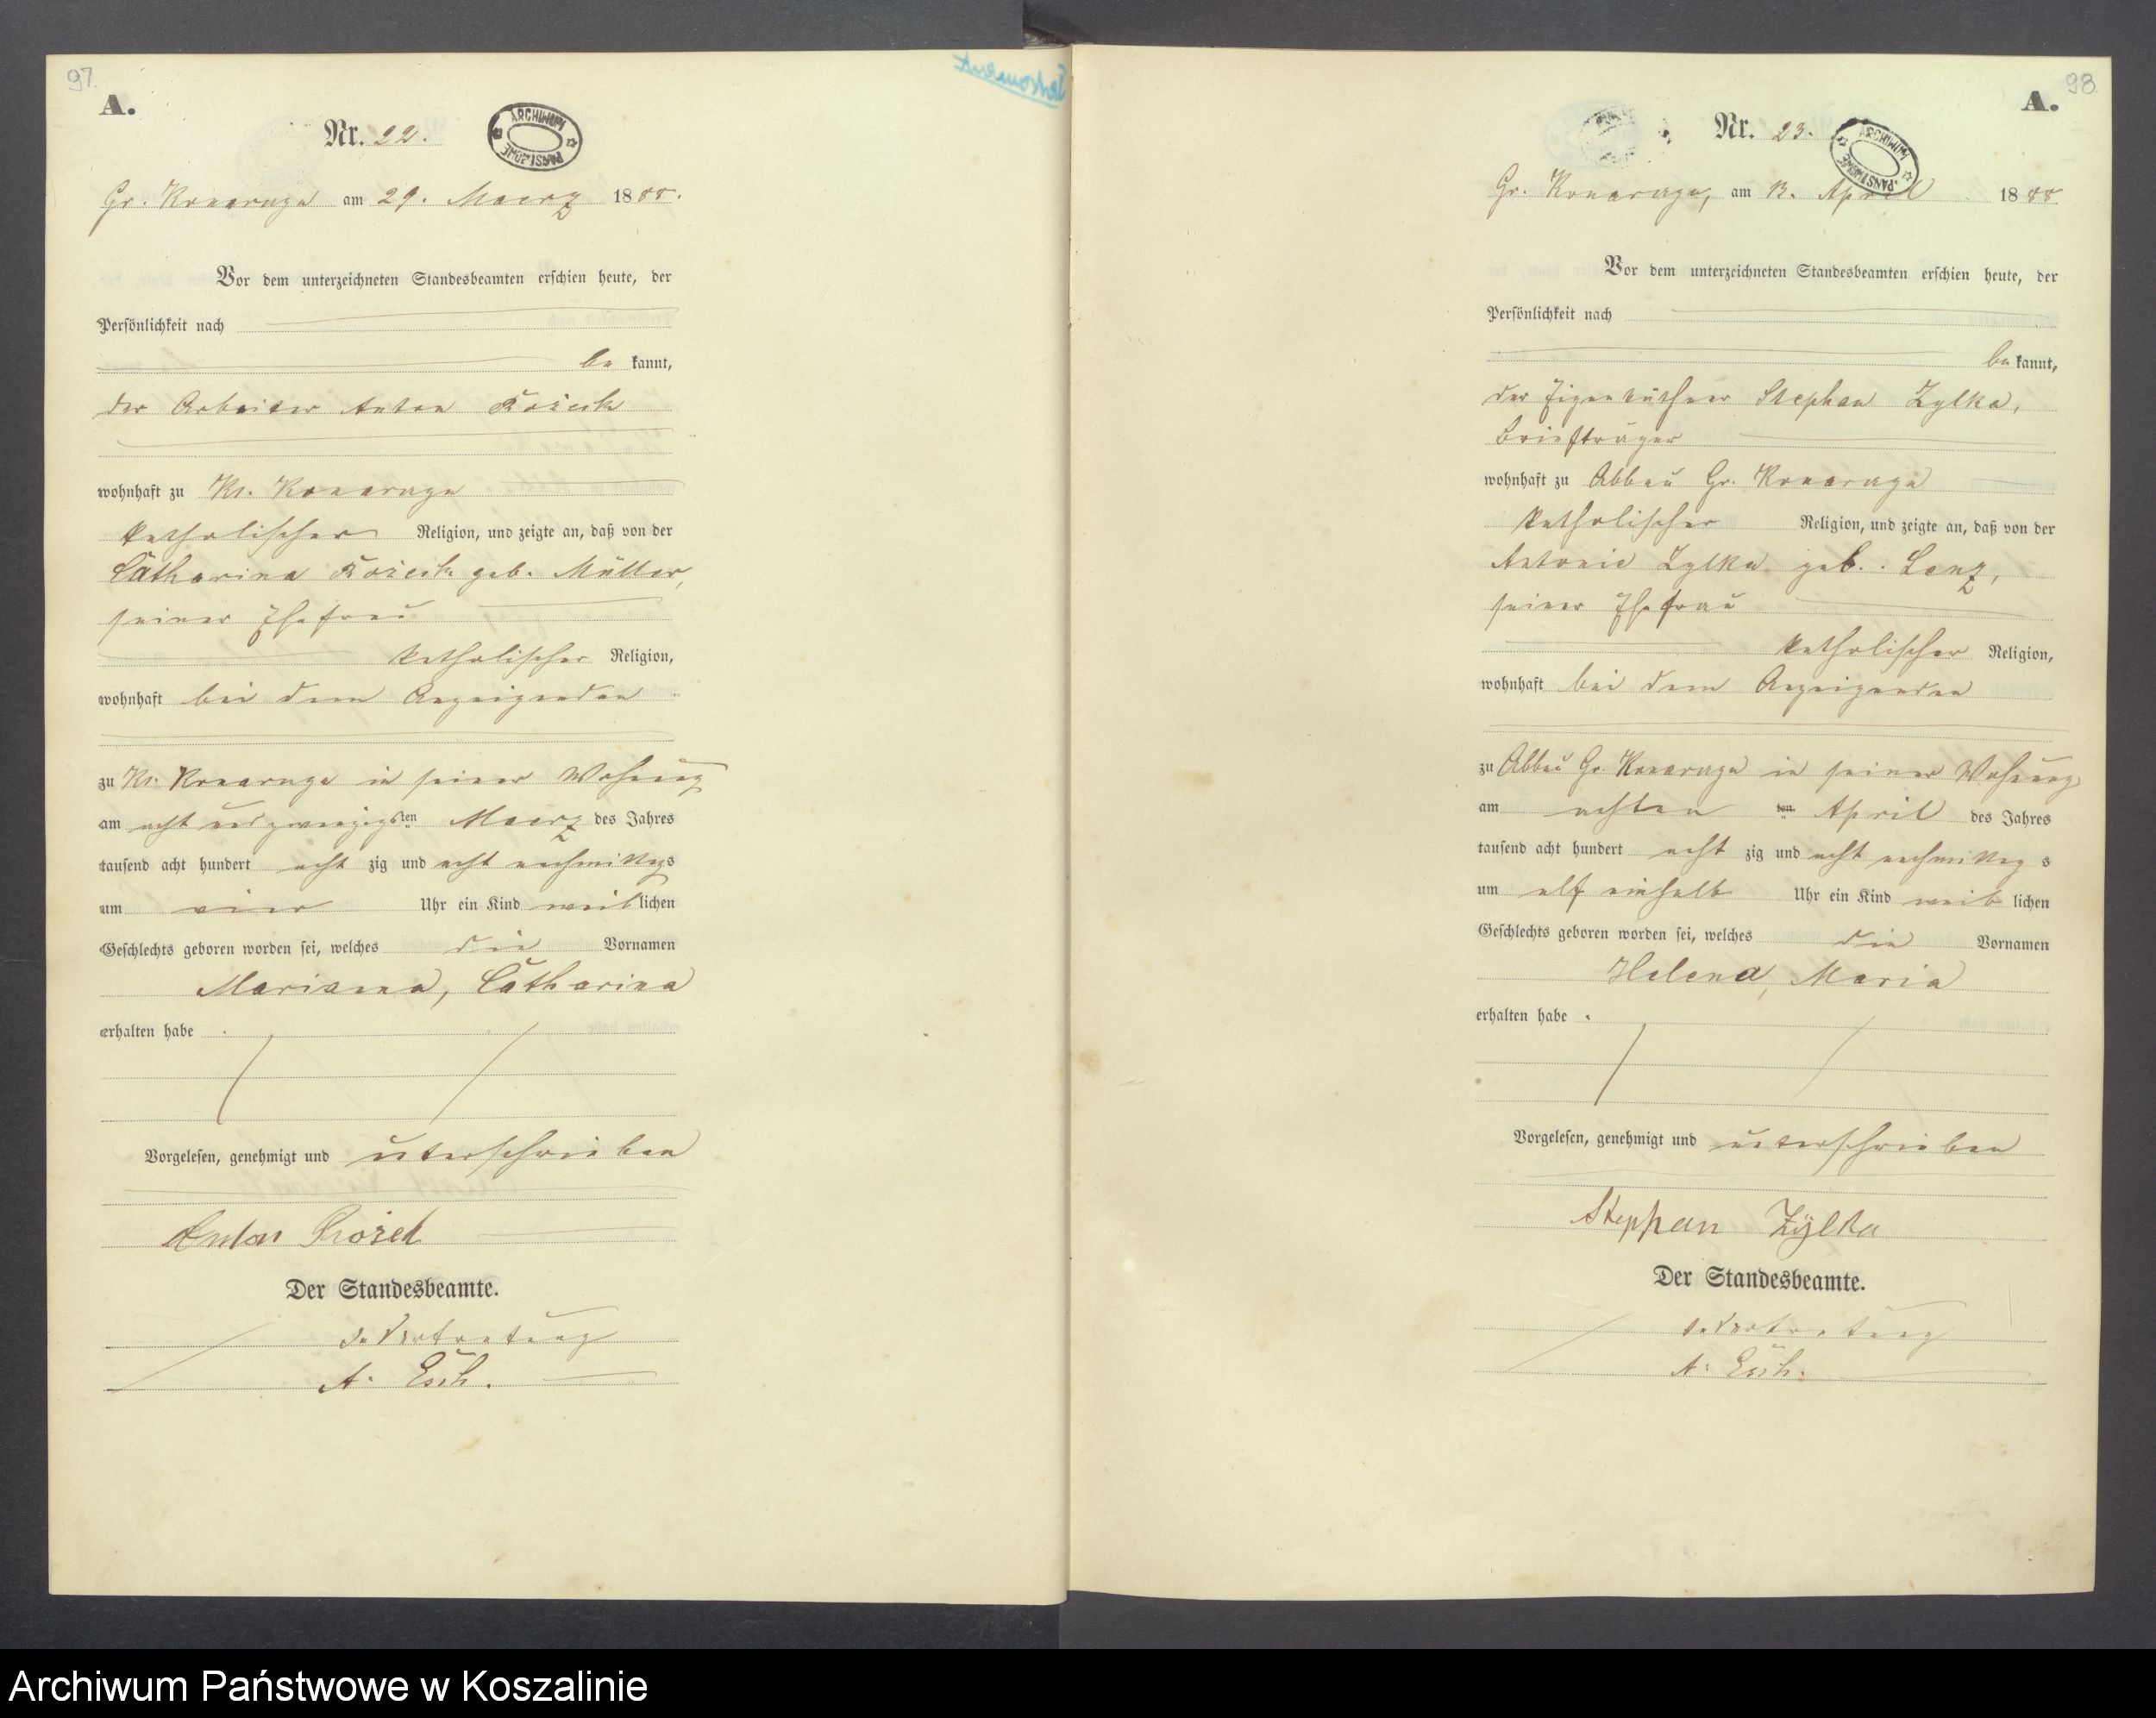 97.
A.
Nr. 22.
ARCHIWUM PAŃSTWOWE
Gr. Konarzyn am 29. Maerz 1888.
Vor dem unterzeichneten Standesbeamten erschien heute, der
Persönlichkeit nach
be kannt,
der Arbeiter Anton
wohnhaft zu Kl. Konarzyn
katholischer Religion, und zeigte an, daß von der
Catharina geb. Müller,
seiner Ehefrau
katholischer Religion,
wohnhaft bei dem Anzeigenden
zu Kl. Konarzyn in seiner Wohnung
am acht und zwanzigsten Maerz des Jahres
tausend acht hundert acht zig und acht nachmittags
um vier Uhr ein Kind weiblichen
Geschlechts geboren worden sei, welches die Vornamen
Marianna, Catharina
erhalten habe.
Vorgelesen, genehmigt und unterschrieben
Anton
Der Standesbeamte.
In Vertretung
A.
98
A.
Nr. 23.
ARCHIWUM PAŃSTWOWE
Gr. Konarzyn, am 13. April 1888
Vor dem unterzeichneten Standesbeamten erschien heute, der
Persönlichkeit nach
be kannt,
der Eigenthümer Stephan Zylka,
Briefträger
wohnhaft zu Abbau Gr. Konarzyn
katholischer Religion, und zeigte an, daß von der
Antonie Zylka geb. Lenz,
seiner Ehefrau
katholischer Religion,
wohnhaft bei dem Anzeigenden
zu Abbau Gr. Konarzyn in seiner Wohnung
am achten ten April des Jahres
tausend acht hundert acht zig und acht nachmittag s
um elf einhalb Uhr ein Kind weib lichen
Geschlechts geboren worden sei, welches die Vornamen
Helena, Maria
erhalten habe.
Vorgelesen, genehmigt und unterschrieben
Stephan Zÿlka
Der Standesbeamte.
In Vertretung
A.
Archiwum Państwowe w Koszalinie